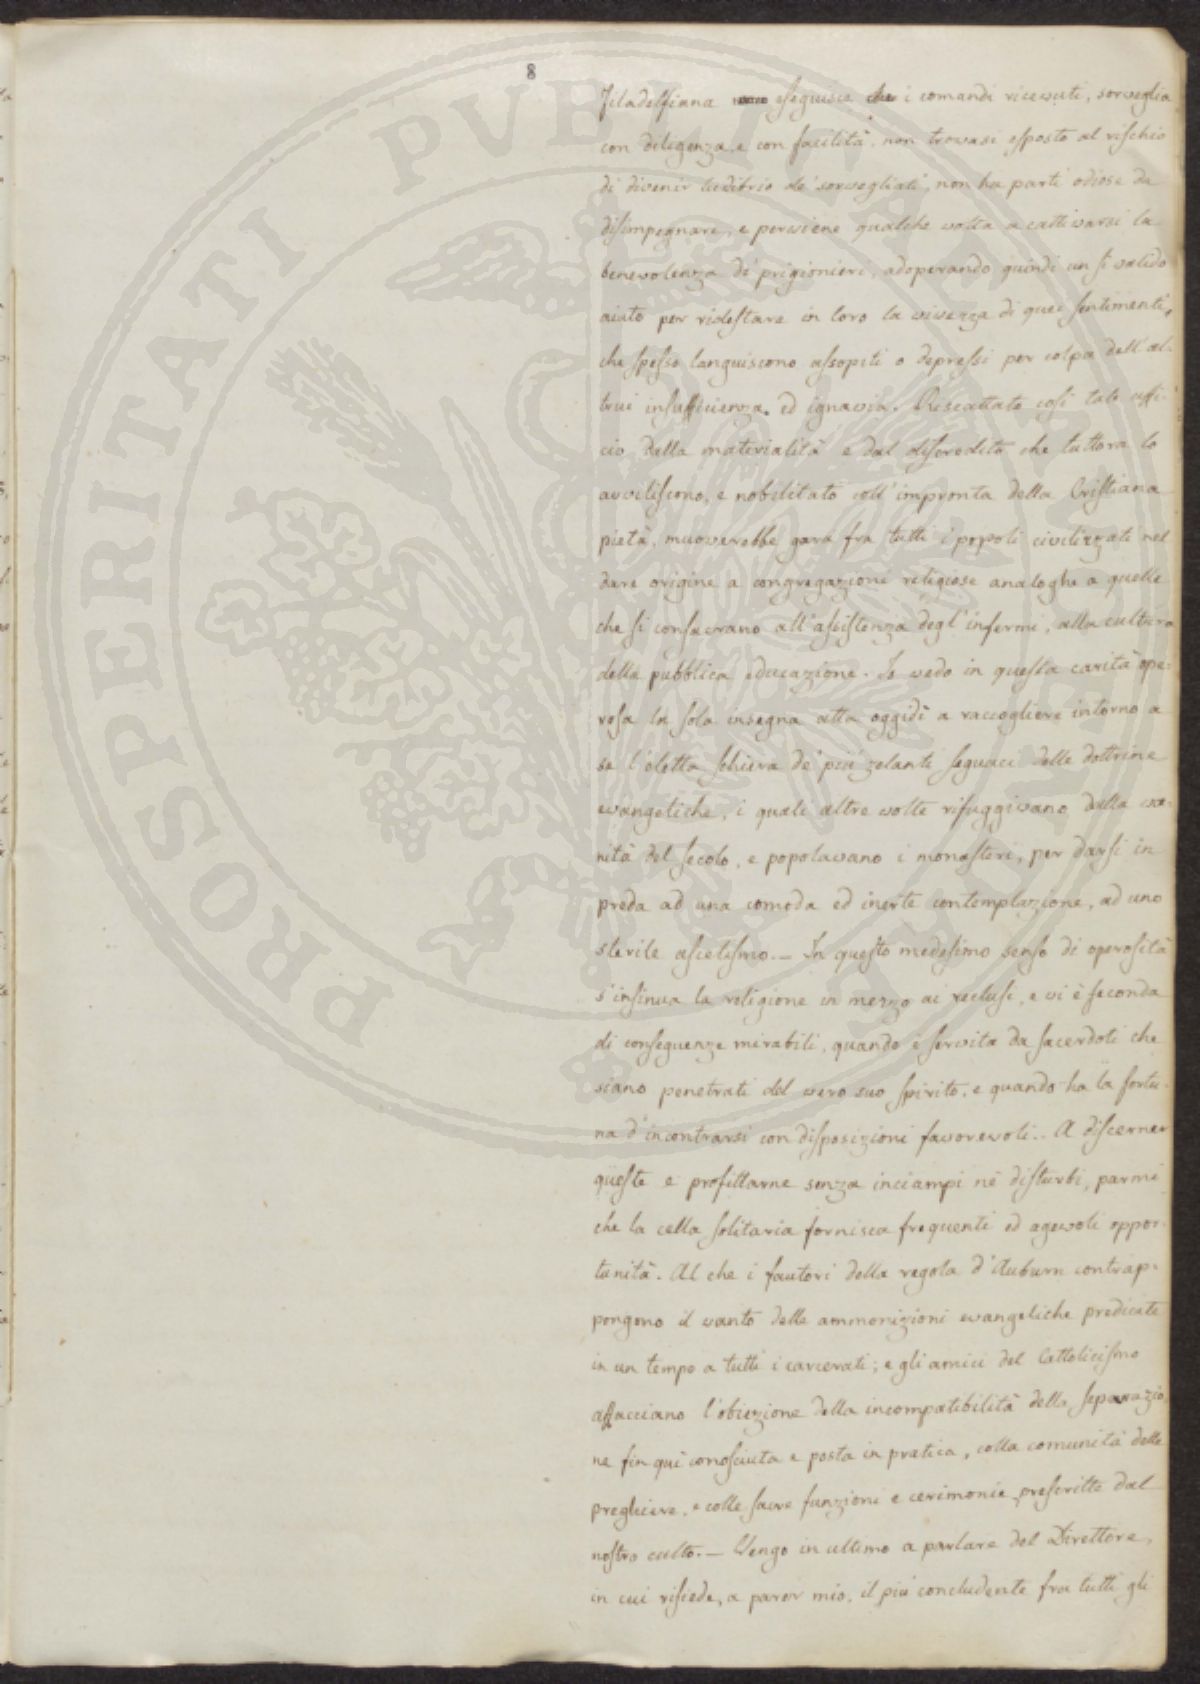 8
Filadelfiana eseguisce che i comandi ricevuti, sorveglia
con diligenza, e con facilità, non trovasi esposto al rischio
di divenir ludibrio de' sorvegliati, non ha parti odiose da
disimpegnare, e perviene qualche volta a cattivarsi la
benevolenza de' prigionieri, adoperando quindi un sì valido
aiuto per ridestare in loro la vivezza di quei sentimenti,
che spesso languiscono assopiti o depressi per colpa dell'al-
trui insufficienza, ed ignavia. Riscattato così tale uffi-
cio dalla materialità e dal discredito che tuttora lo
avviliscono, e nobilitato coll'impronta della Cristiana
pietà, muoverebbe gara fra tutti i popoli civilizzati nel
dare origine a congregazioni religiose analoghe a quelle
che si consacrano all'assistenza degl'infermi, alla cultura
della pubblica educazione. Io vedo in questa carità ope-
rosa la sola insegna atta oggidì a raccogliere intorno a
se l'eletta schiera de' più zelanti seguaci delle dottrine
evangeliche, i quali altre volte rifuggivano dalla va-
nità del secolo, e popolavano i monasteri, per darsi in
preda ad una comoda ed inerte contemplazione, ad uno
sterile ascetismo. — In questo medesimo senso di operosità
s'insinua la religione in mezzo ai reclusi, e vi è feconda
di conseguenze mirabili, quando è servita da sacerdoti che
siano penetrati del vero suo spirito, e quando ha la fortu-
na d'incontrarsi con disposizioni favorevoli.. A discerner
queste e profittarne senza inciampi nè disturbi, parmi
che la cella solitaria fornisca frequenti ed agevoli oppor-
tunità. Al che i fautori della regola d'Auburn contrap-
pongono il vanto delle ammonizioni evangeliche predicate
in un tempo a tutti i carcerati; e gli amici del Cattolicismo
affacciano l'obiezione della incompatibilità della separazio-
ne fin qui conosciuta e posta in pratica, colla comunità delle
preghiere, e colle sacre funzioni e cerimonie prescritte dal
nostro culto. — Vengo in ultimo a parlare del Direttore,
in cui risiede, a parer mio, il più concludente fra tutti gli
PROSPERITATI PUBLICAE